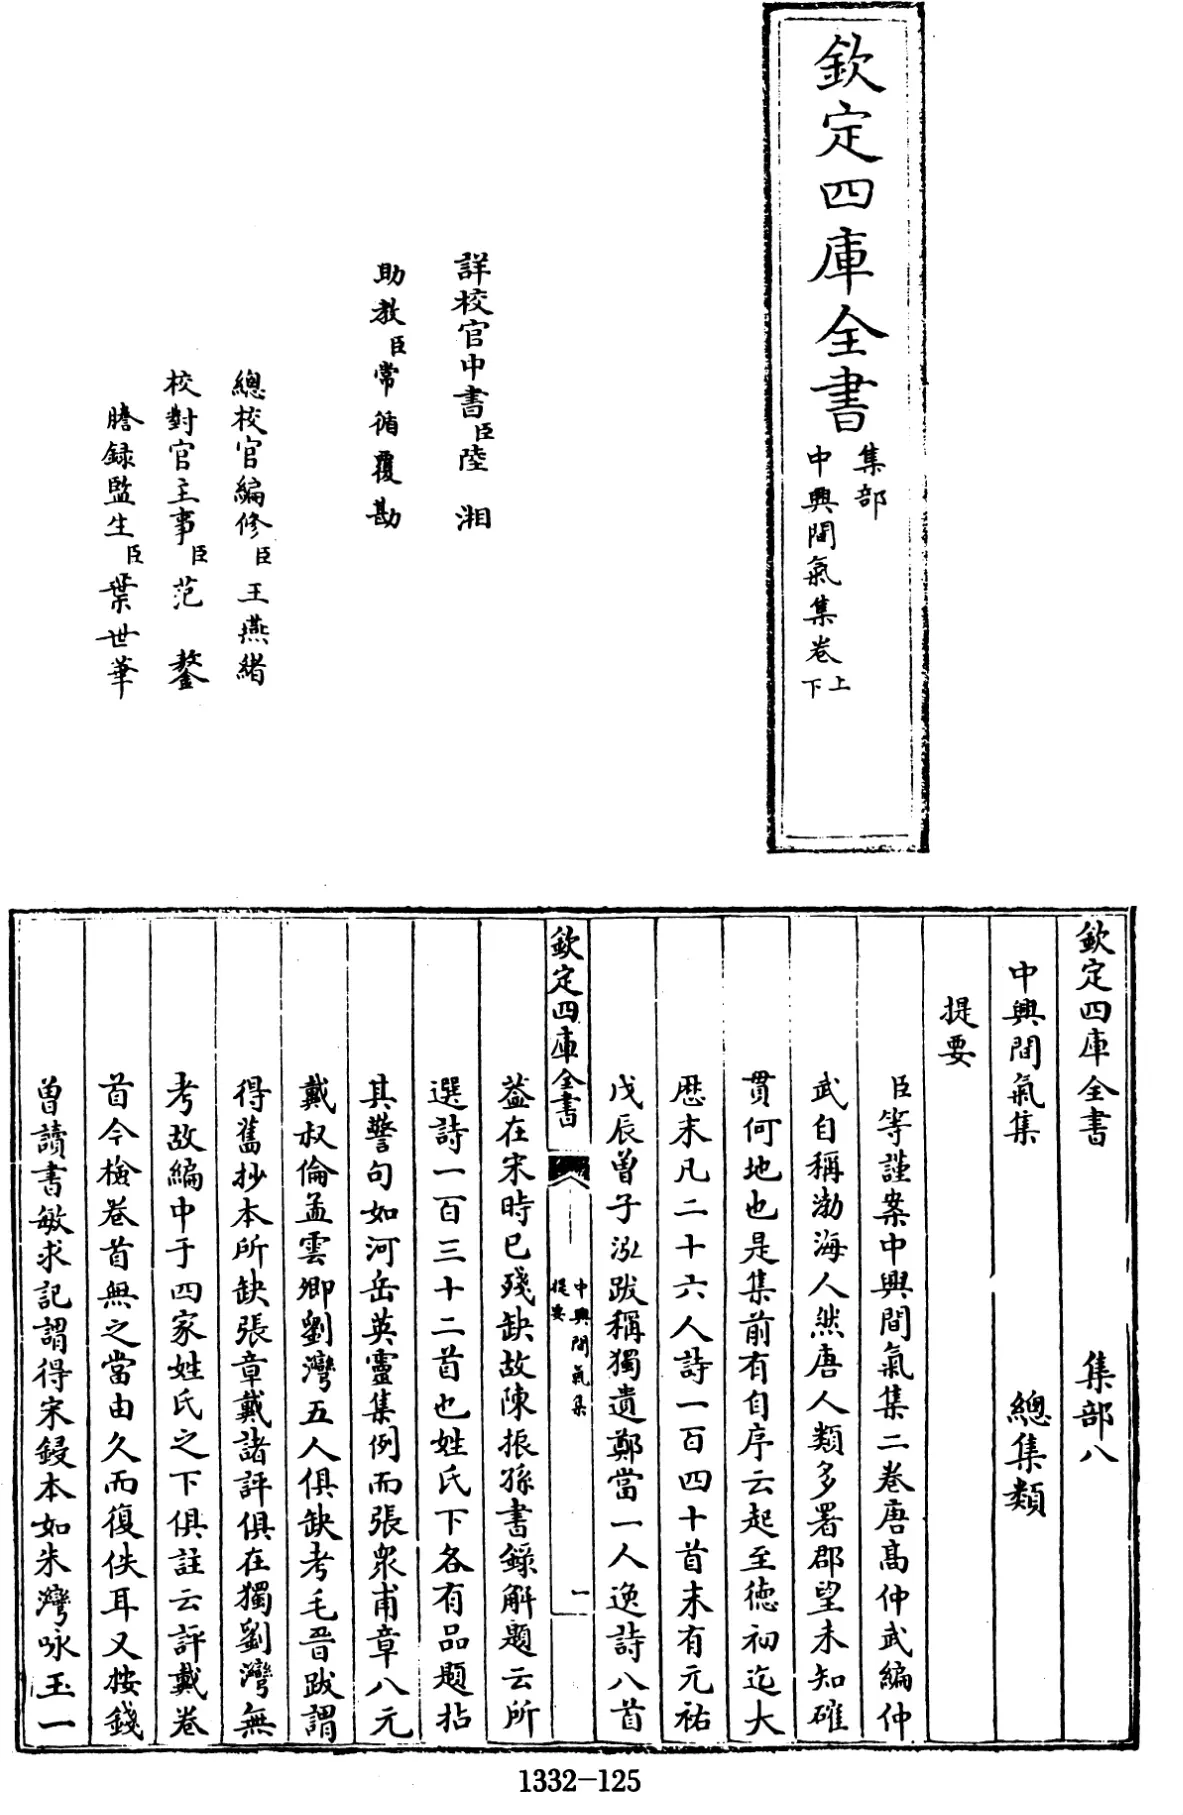 欽定四庫全書
集部
中興間氣集卷上下
詳校官中書臣陸湘
助教臣常循覆勘
總校官編修臣王燕緒
校對官主事臣范鏊
謄錄監生臣葉世華
欽定四庫全書 集部八
中興間氣集 總集類
提要
臣等謹案中興間氣集二卷唐高仲武編仲
武自稱渤海人然唐人類多署郡望未知確
貫何地也是集前有自序云起至徳初迄大
厯末凡二十六人詩一百四十首末有元祐
戊辰曾子泓跋稱獨遺鄭當一人逸詩八首
欽定四庫全書 中興間氣集 提要 一
葢在宋時已殘缺故陳振孫書錄解題云所
選詩一百三十二首也姓氏下各有品題拈
其警句如河岳英靈集例而張衆甫章八元
戴叔倫孟雲卿劉灣五人俱缺考毛晉跋謂
得舊抄本所缺張章戴諸評俱在獨劉灣無
考故編中于四家姓氏之下俱註云評載卷
首今檢卷首無之當由久而復佚耳又按錢
曾讀書敏求記謂得宋鋟本如朱灣咏玉一
1332-125